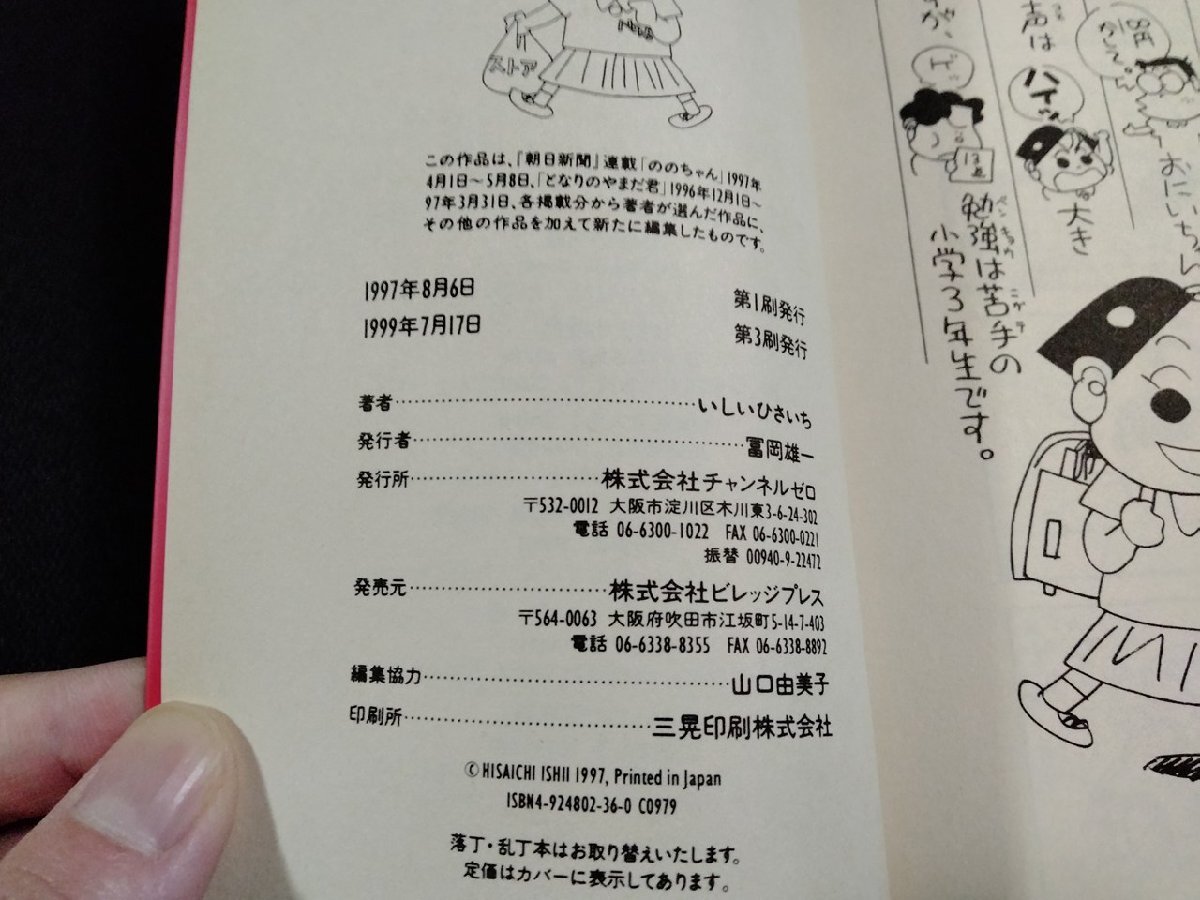 ストア
この作品は、『朝日新聞』連載「ののちゃん」1997年
4月1日〜5月8日、「となりのやまだ君」1996年12月1日〜
97年3月31日、各掲載分から著者が選んだ作品に、
その他の作品を加えて新たに編集したものです。
1997年8月6日 第1刷発行
1999年7月17日 第3刷発行
著者……………………………いしいひさいち
発行者……………………………冨岡雄一
発行所……………………株式会社チャンネルゼロ
〒532-0012 大阪市淀川区木川東3-6-24-302
電話 06-6300-1022 FAX 06-6300-0221
振替 00940-9-22472
発売元……………………株式会社ビレッジプレス
〒564-0063 大阪府吹田市江坂町5-14-7-403
電話 06-6338-8355 FAX 06-6338-8892
編集協力……………………………山口由美子
印刷所……………………三晃印刷株式会社
©HISAICHI ISHII 1997, Printed in Japan
ISBN4-924802-36-0 C0979
落丁・乱丁本はお取り替えいたします。
定価はカバーに表示してあります。
おにいちゃん
声は
ハイッ
大き
が、
勉強は苦手の
ベンキョウ
ニガテ
小学3年生です。